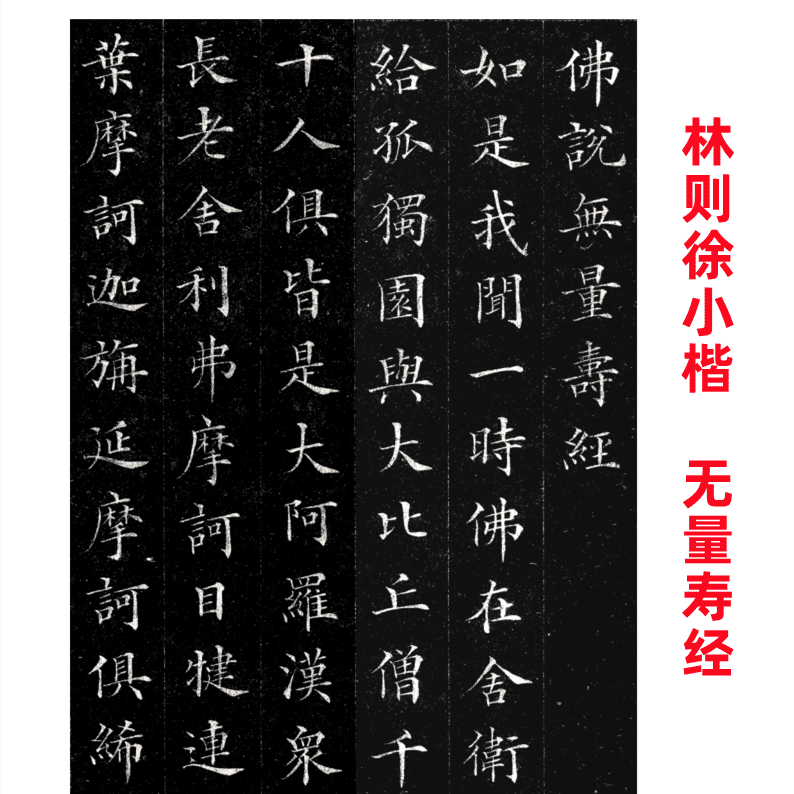 林则徐小楷 无量寿经
佛說無量壽經
如是我聞一時佛在舍衛
給孤獨園與大比丘僧千
十人俱皆是大阿羅漢衆
長老舍利弗摩訶目犍連
葉摩訶迦旃延摩訶俱絺